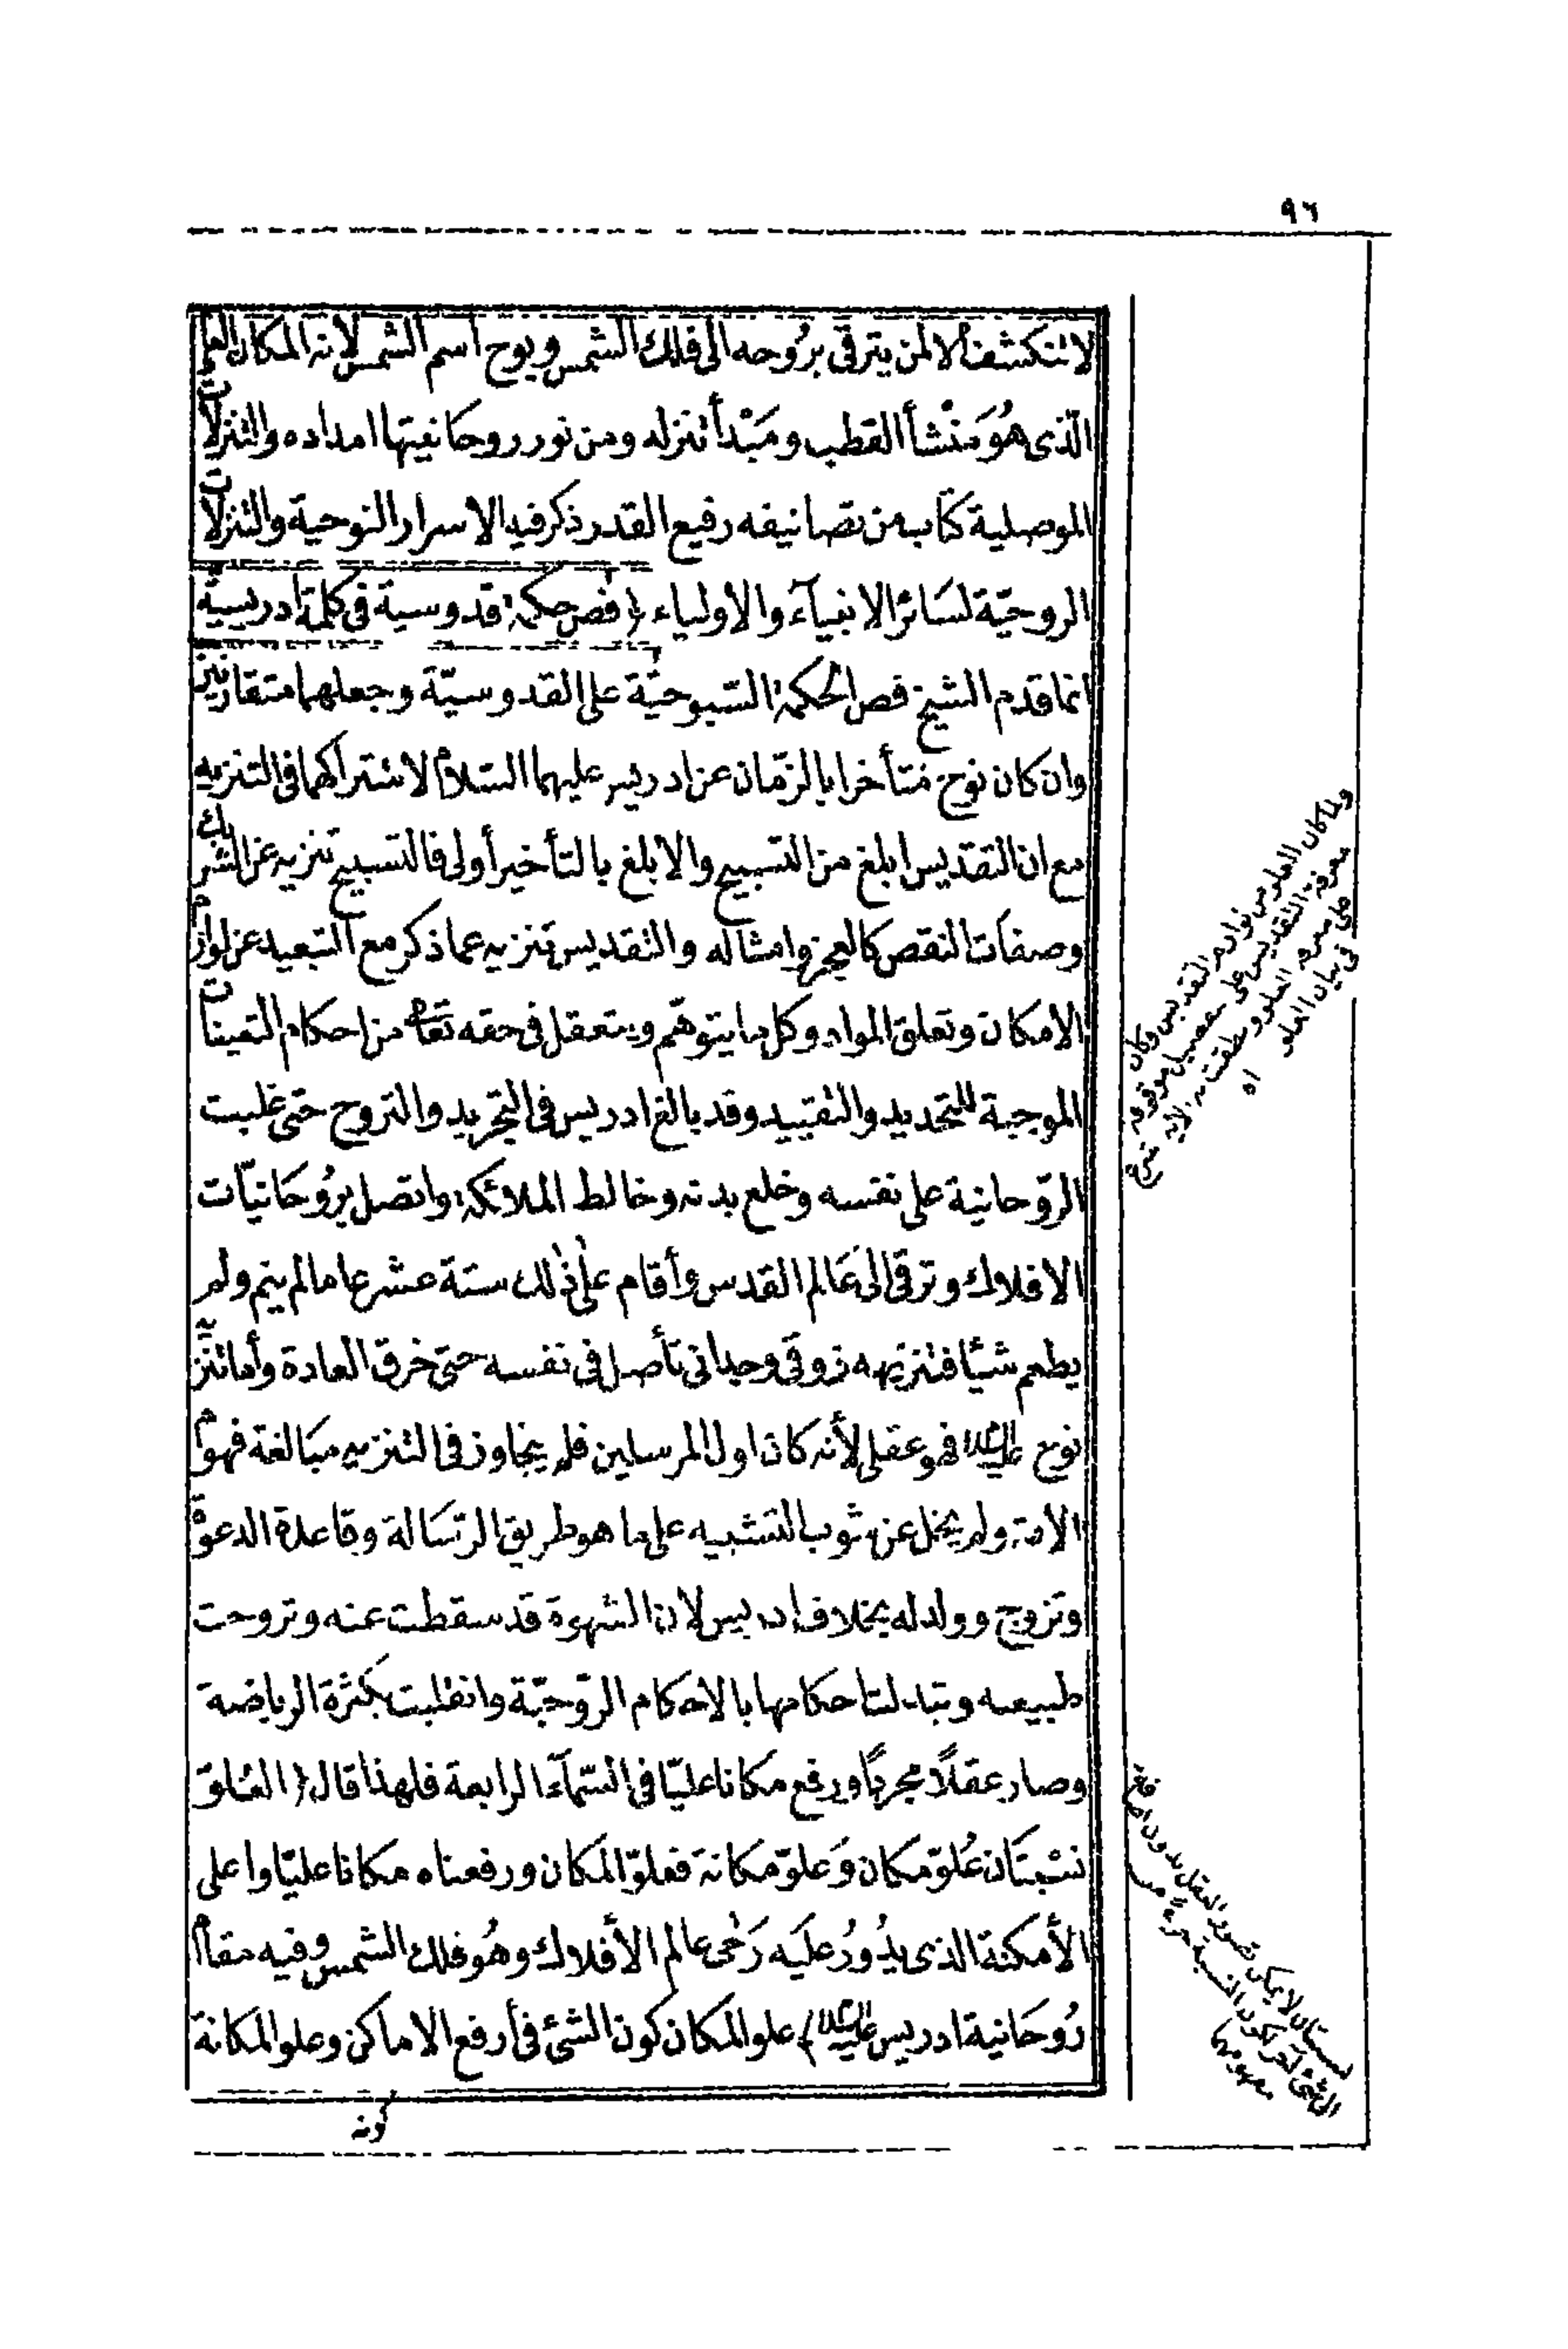 ٩٦
لا تنكشف الا لمن يترقى بروحه الى فلك الشمس ويوح اسم الشمس لانه المكان العلى
الّذى هُوَ مَنْشأ القطب ومَبْدأ تنزله ومن نور روحانيتها امداده والتنزلات
الموصلية كتابه من تصانيفه رفيع القدر ذكر فيه الاسرار النوحية والتنزلات
الروحيّة لسَائر الانبيآء والاولياء ﴿ فص حكمة قدوسية فى كلمة ادريسيّة ﴾
انما قدم الشيخ فص الحكمة السّبوحيّة على القدوسيّة وجعلهما متقارنين
وان كان نوح متأخرا بالزّمان عن ادريس عليهما السّلام لاشتراكهما فى التنزيه
مع ان التقديس ابلغ من التسبيح والابلغ بالتأخير أولى فالتسبيح تنزيه عن الشريك
وصفات النقص كالعجز وامثاله والتقديس تنزيه عما ذكر مع التبعيد عن لوازم
الامكان وتعلق المواد وكل ما يتوهّم ويتعقل فى حقه تعالى من احكام التعينات
الموجبة للتحديد والتقييد وقد بالغ ادريس فى التجريد والتروح حتى غلبت
الرّوحانية على نفسه وخلع بدنه وخالط الملائكة واتصل برُوحَانيّات
الافلاك وترقى الى عَالم القدس وأقام على ذٰلك ستة عشر عاما لم ينم ولم
يطعم شيئًا فتنزيهه ذوقى وجدانى تأصل فى نفسه حتى خرق العادة وأما تنزيه
نوح عليه السلام فهو عقلى لأنه كان اول المرسلين فلم يتجاوز فى التنزيه مبالغة فهوم
الامة ولم يخل عن شوب التشبيه على ما هو طريق الرسَالة وقاعدة الدعوة
وتزوج وولد له بخلاف ادريس لان الشهوة قد سقطت عنه وتروحت
طبيعه وتبدلت احكامها بالاحكام الرّوحيّة وانقلبت بكثرة الرياضة
وصار عقلاً مجردًا ورفع مكانا عليّا فى السّمآء الرابعة فلهذا قال ﴿ العُلوّ
نسْبتَان عُلوّ مكان وَعلوّ مكانة فعلوّ المكان ورفعناه مكانا عليّا واعلى
الأمكنة الذى يدُورُ عليَه رَحٰى عالم الأفلاك وهُو فلك الشمس وفيه مقام
رُوحَانية ادريس عليه السلام ﴾ علو المكان كون الشئ فى أرفع الاماكن وعلو المكانة
كونه
ولما كان العلو من لوازم التقديس وكان
معرفة التقديس على
على معرفة العلو
فى بيان العلو
اه
نسبتان لا يمكن تصور العقل بدون
مفهومها